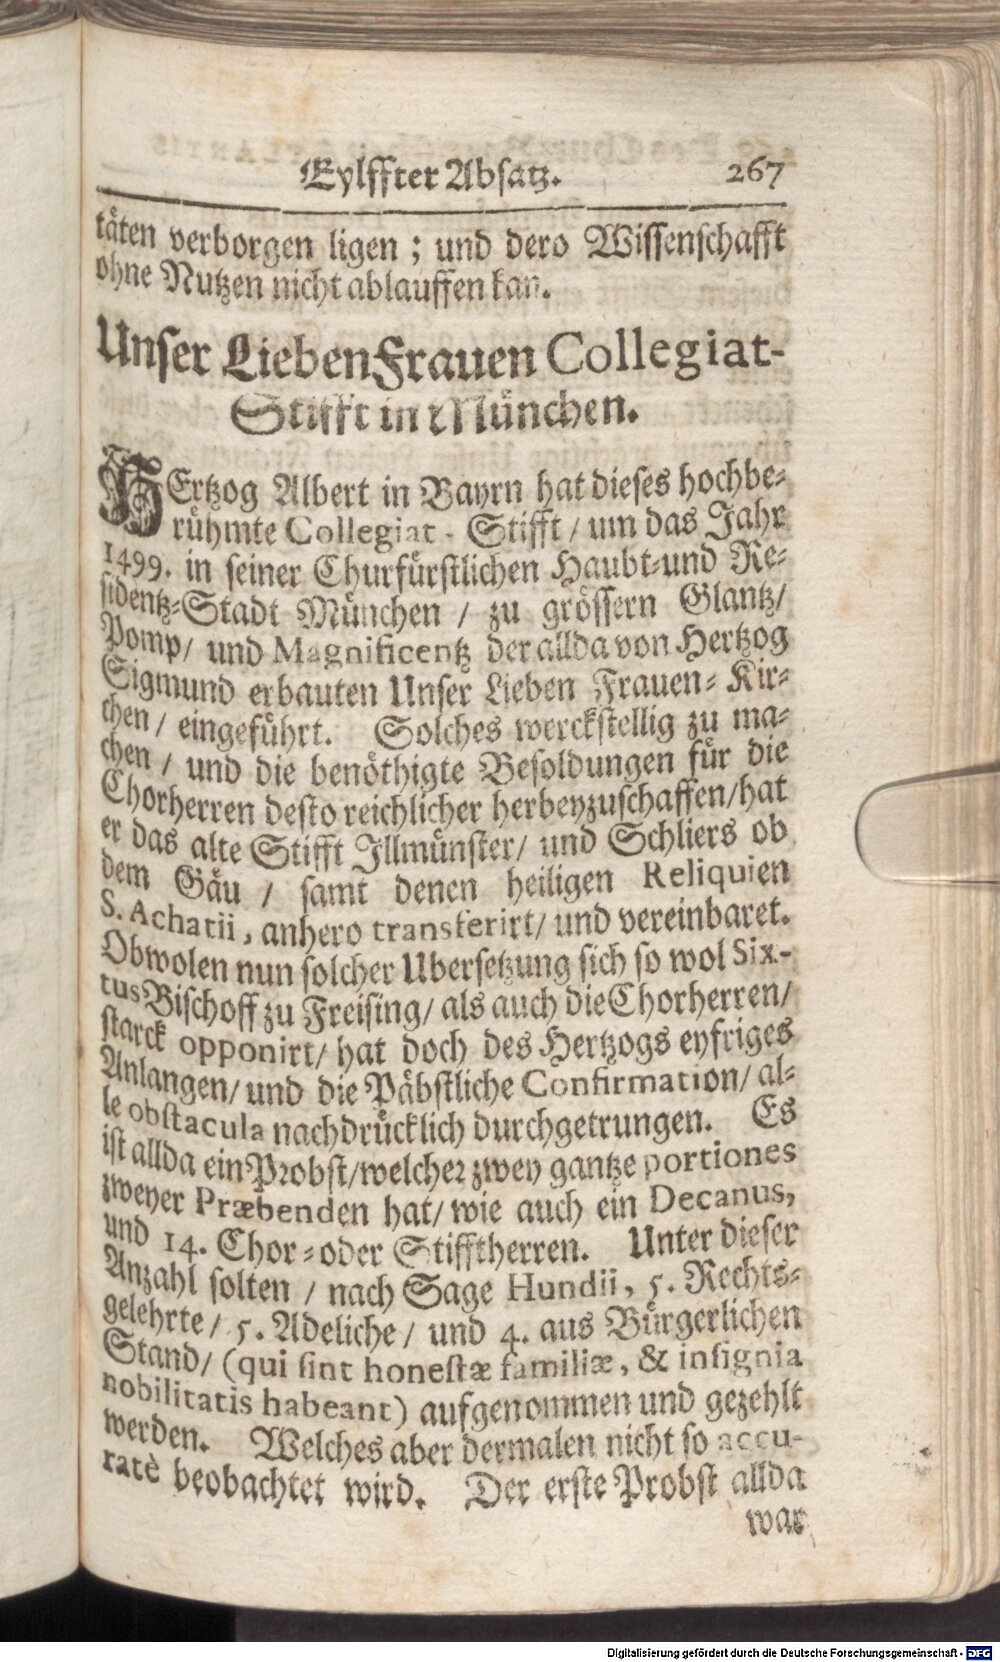 Eylffter Absatz. 267
täten verborgen ligen ; und dero Wissenschafft
ohne Nutzen nicht ablauffen kan.
Unser Lieben Frauen Collegiat-
Stifft in München.
HErtzog Albert in Bayrn hat dieses hochbe-
rühmte Collegiat - Stifft / um das Jahr
1499. in seiner Churfürstlichen Haubt-und Re-
sidentz-Stadt München / zu grössern Glantz/
Pomp/ und Magnificentz der allda von Hertzog
Sigmund erbauten Unser Lieben Frauen- Kir-
chen / eingeführt. Solches werckstellig zu ma-
chen / und die benöthigte Besoldungen für die
Chorherren desto reichlicher herbeyzuschaffen/hat
er das alte Stifft Illmünster/ und Schliers ob
dem Gäu / samt denen heiligen Reliquien
S. Achatii, anhero transferirt/ und vereinbaret.
Obwolen nun solcher Ubersetzung sich so wol Six-
tus Bischoff zu Freising/ als auch die Chorherren/
starck opponirt/ hat doch des Hertzogs eyfriges
Anlangen/ und die Päbstliche Confirmation/ al-
le obstacula nachdrücklich durchgetrungen. Es
ist allda ein Probst/welcher zwey gantze portiones
zweyer Præbenden hat/ wie auch ein Decanus,
und 14. Chor-oder Stifftherren. Unter dieser
Anzahl solten / nach Sage Hundii, 5. Rechts-
gelehrte/ 5. Adeliche/ und 4. aus Bürgerlichen
Stand/ (qui sint honestæ familiæ, & insignia
nobilitatis habeant) aufgenommen und gezehlt
werden. Welches aber dermalen nicht so accu-
ratè beobachtet wird. Der erste Probst allda
war
Digitalisierung gefördert durch die Deutsche Forschungsgemeinschaft - DFG